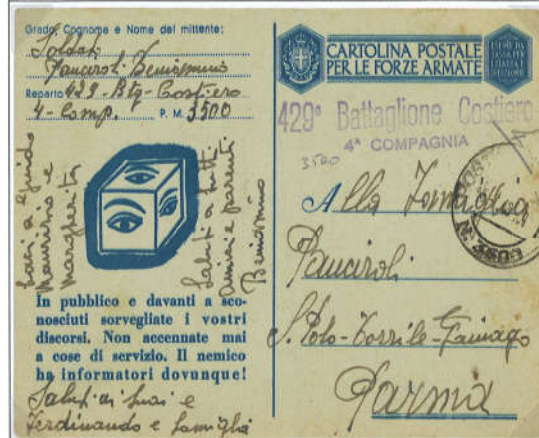 Grado, Cognome e Nome del mittente:
Soldato
Panciroli Beniamino
Reparto 429 - Btg - Costiero
4 - Comp. P. M. 3500
Baci a Guido
Maurizio e
Margherita
Saluti a tutti
amici e parenti
Beniamino
In pubblico e davanti a sco-
nosciuti sorvegliate i vostri
discorsi. Non accennate mai
a cose di servizio. Il nemico
ha informatori dovunque!
Saluti ai suoi e
Ferdinando e famiglia
CARTOLINA POSTALE
PER LE FORZE ARMATE
429° Battaglione Costiero
4ª COMPAGNIA
3500
Alla Famiglia
Panciroli
S. Polo - Torrile - Gainago
Parma
POSTA
N. 3500